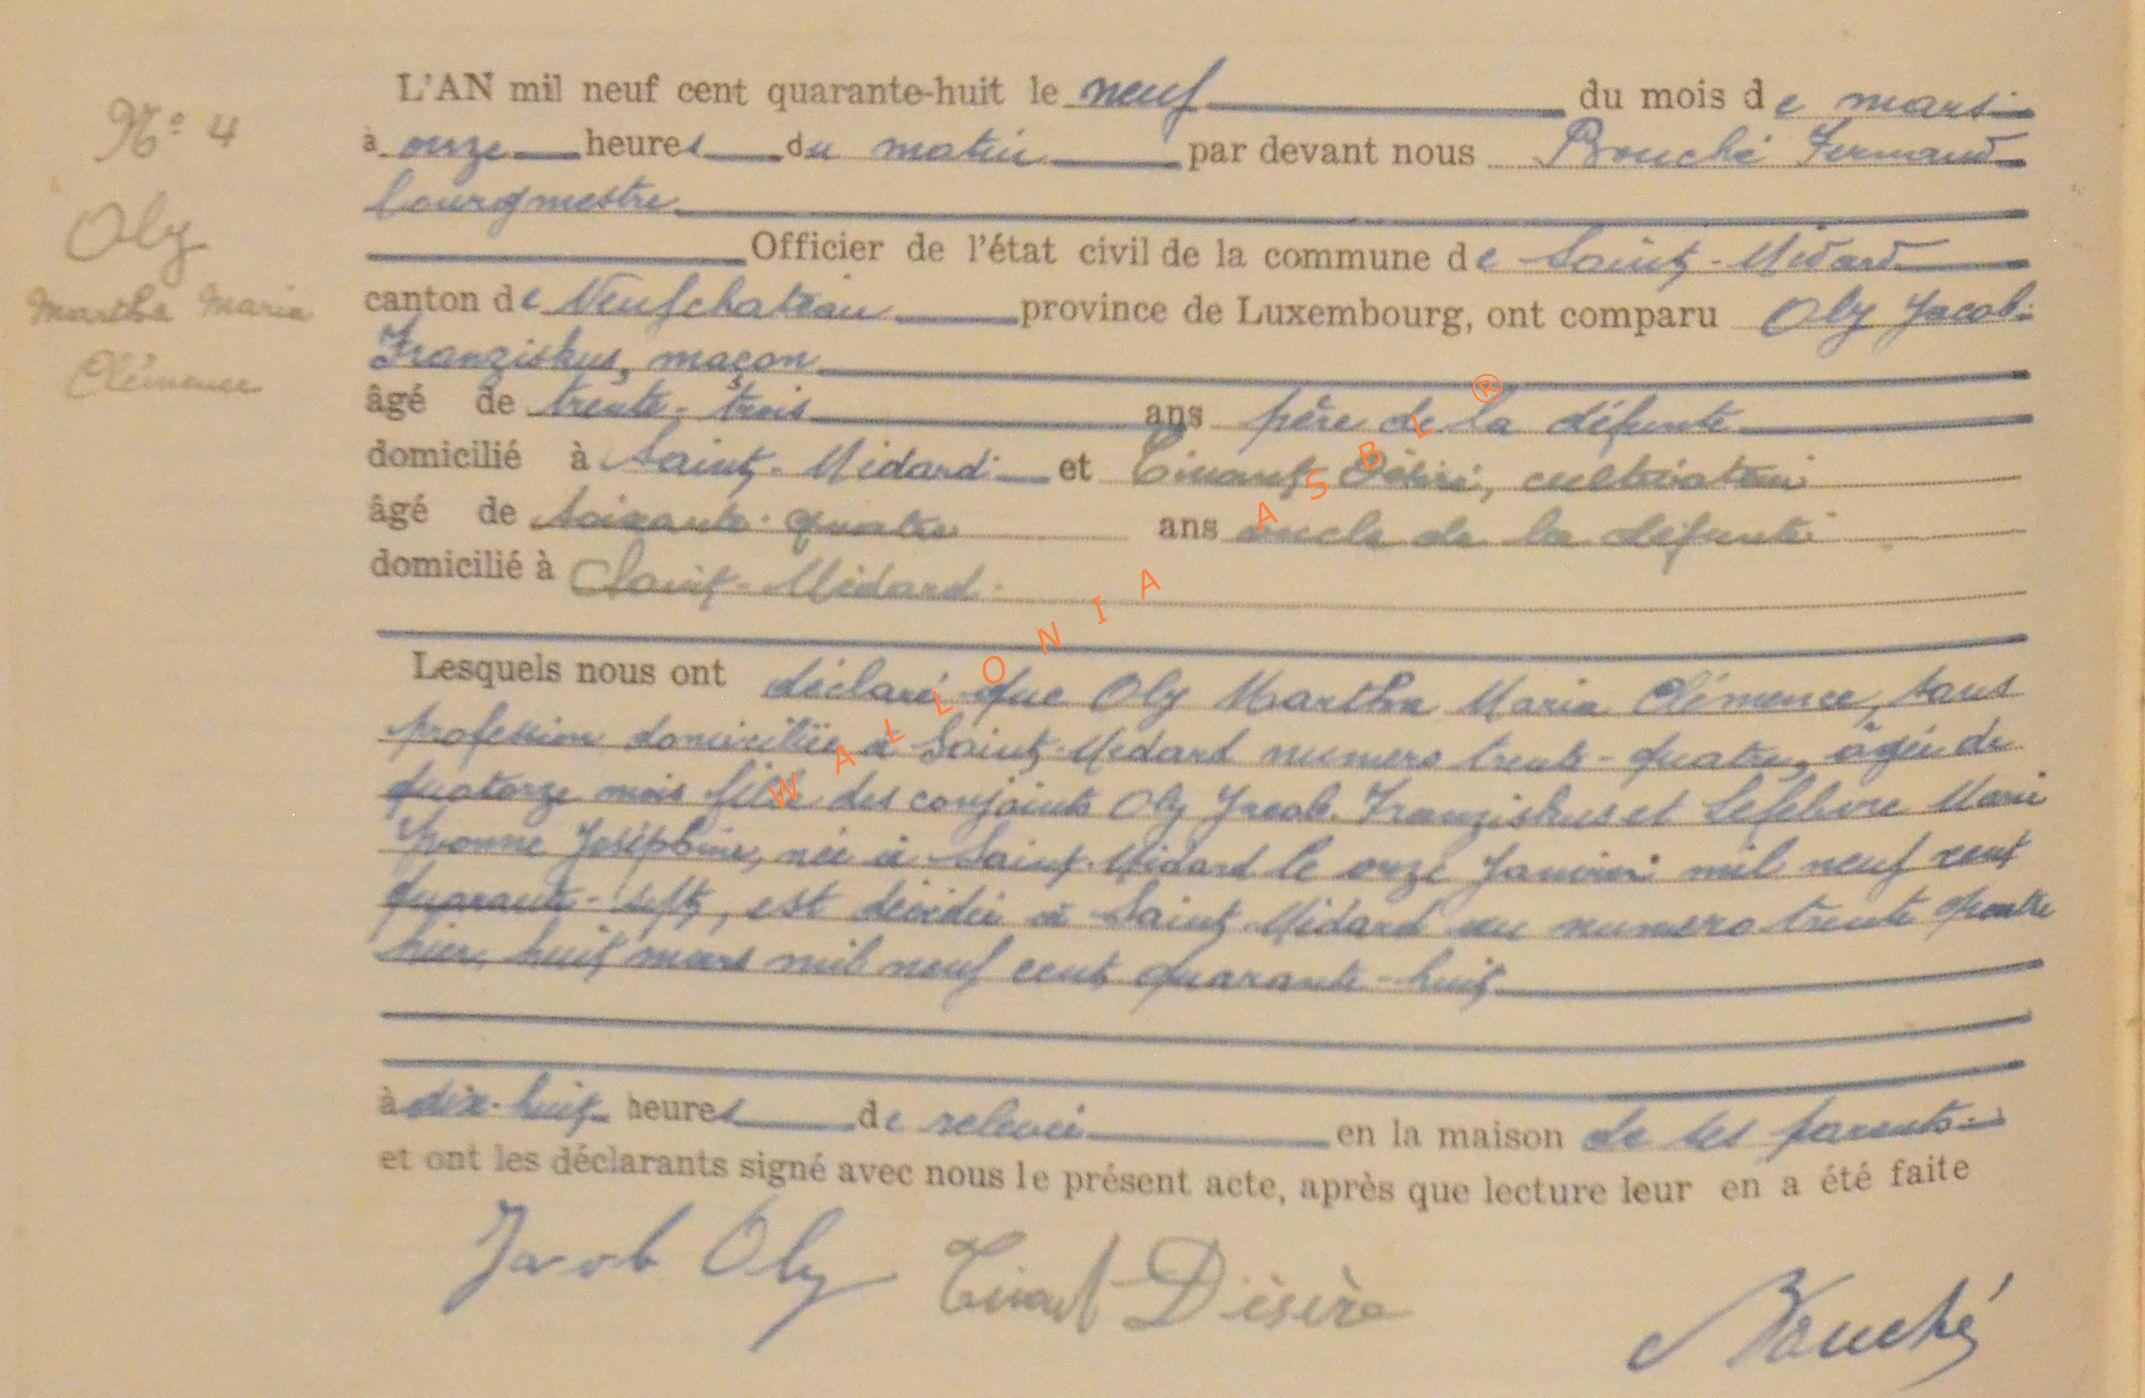 N° 4
Oly
Martha Maria
Clémence
L'AN mil neuf cent quarante-huit le neuf du mois de mars
à onze heures du matin par devant nous Bouché Fernand
bourgmestre
Officier de l'état civil de la commune de Saint-Médard
canton de Neufchateau province de Luxembourg, ont comparu Oly Jacob
Franziskus, maçon
âgé de trente-trois ans père de la défunte
domicilié à Saint-Médard et Tinant Désiré, cultivateur
âgé de soixante-quatre ans oncle de la défunte
domicilié à Saint-Médard
Lesquels nous ont déclaré que Oly Martha Maria Clémence, sans
profession domiciliée à Saint-Médard numero trente-quatre, âgée de
quatorze mois fille des conjoints Oly Jacob Franziskus et Lefebvre Marie
Yvonne Joséphine, née à Saint-Médard le onze Janvier mil neuf cent
quarante-sept, est décédée à Saint-Médard au numero trente quatre
hier, huit mars mil neuf cent quarante-huit
à dix-huit heures de relevée en la maison de ses parents
et ont les déclarants signé avec nous le présent acte, après que lecture leur en a été faite
Jacob Oly Tinant Désiré
Bouché
WALLONIA ASBL ®